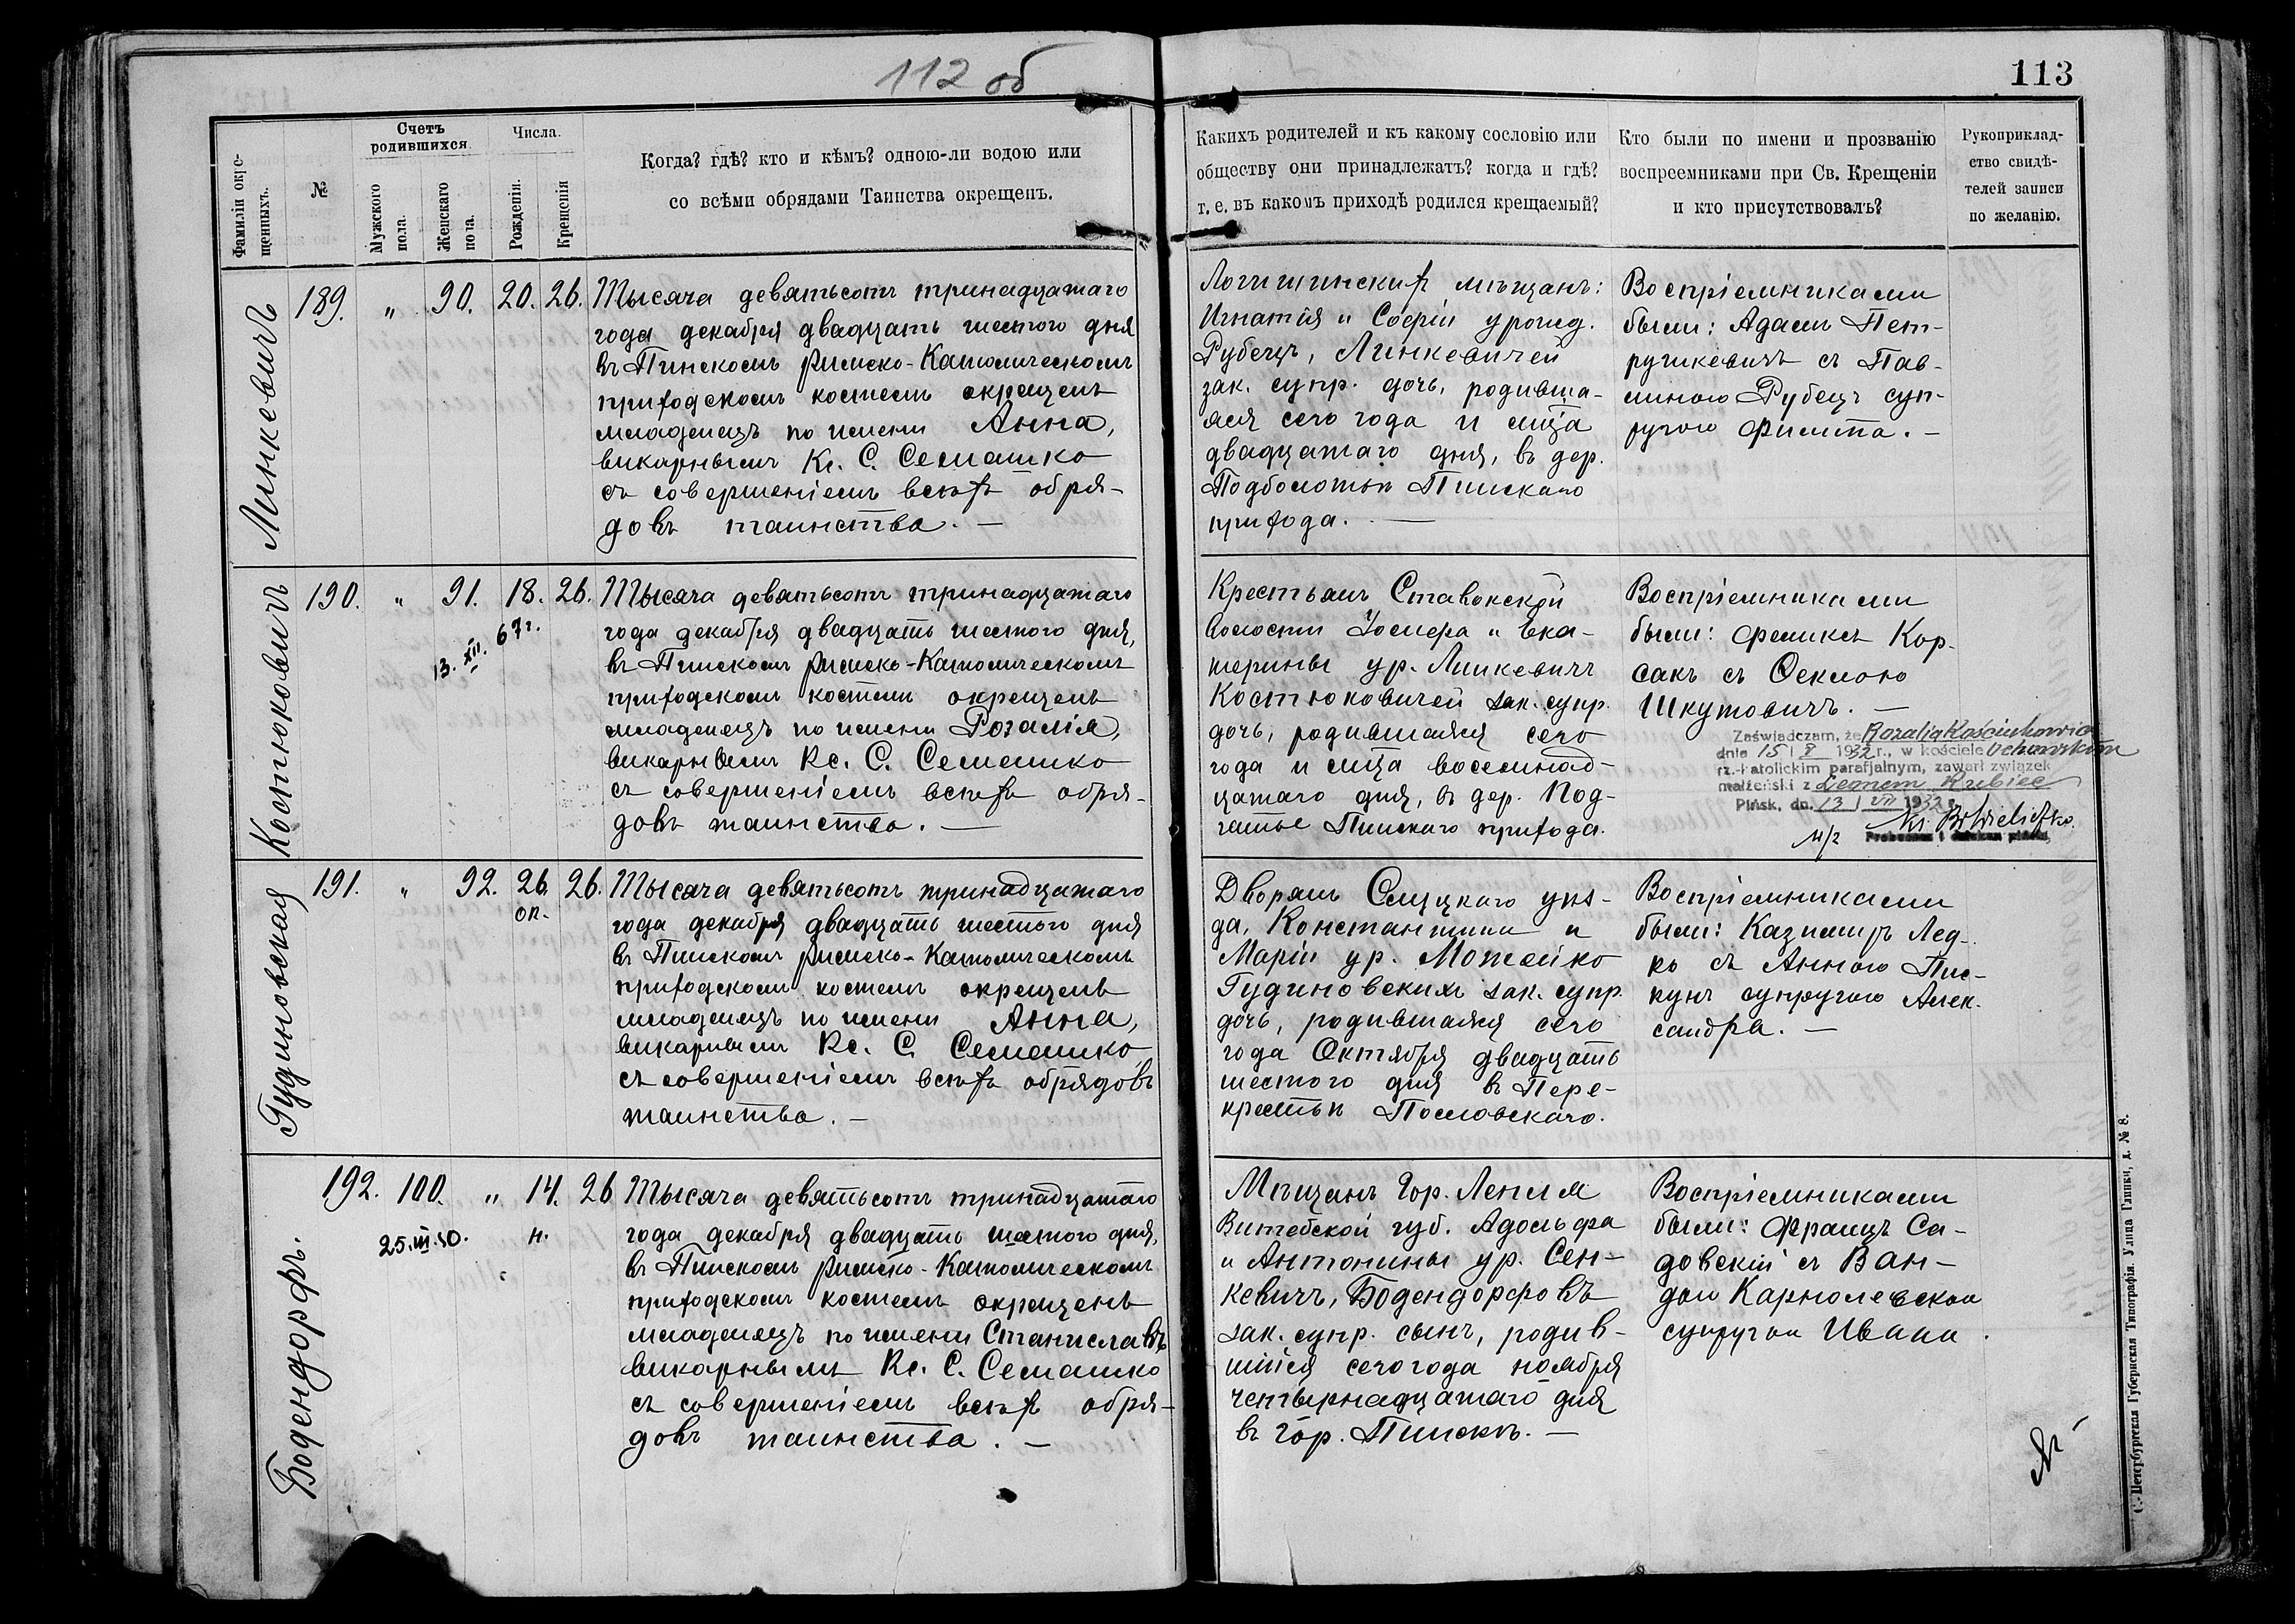 112 об
113
Фамиліи окре-
щенныхъ.
№
Счетъ
родившихся.
Мужскаго
пола.
Женскаго
пола.
Числа.
Рожденія.
Крещенія
Когда? гдѣ? кто и кѣмъ? одною-ли водою или
со всѣми обрядами Таинства окрещенъ.
Какихъ родителей и къ какому сословію или
обществу они принадлежатъ? когда и гдѣ?
т. е. въ какомъ приходѣ родился крещаемый?
Кто были по имени и прозванію
воспреемниками при Св. Крещеніи
и кто присутствовалъ?
Рукоприклад-
ство свидѣ-
телей записи
по желанію.
Линкевичъ
189. " 90. 20. 26.
Тысяча девятьсотъ тринадцатаго
года декабря двадцать шестого дня
въ Пинскомъ Римско-Католическомъ
приходскомъ костелѣ окрещенъ
младенецъ по имени Анна,
викарнымъ Кс. С. Семашко
съ совершеніемъ всѣхъ обря-
довъ таинства. —
Логишинскихъ мѣщанъ:
Игнатія и Софіи урожд.
Рубецъ, Линкевичей
зак. супр. дочь, родивша-
яся сего года и м-ца
двадцатаго дня, въ дер.
Подболотьи Пинскаго
прихода. —
Воспріемниками
были: Адамъ Пет-
рушкевичъ съ Пав-
линою Рубецъ суп-
ругою Филипа. —
Костюковичъ
190. " 91. 18. 26.
13. XII. 67 г.
Тысяча девятьсотъ тринадцатаго
года декабря двадцать шестого дня,
въ Пинскомъ Римско-Католическомъ
приходскомъ костелѣ окрещенъ
младенецъ по имени Розалія,
викарнымъ Кс. С. Семашко
съ совершеніемъ всѣхъ обря-
довъ таинства. —
Крестьянъ Ставокской
волости Іосифа и Ека-
терины ур. Линкевичъ
Костюковичей зак. супр.
дочь, родившаяся сего
года и м-ца восемнад-
цатаго дня, въ дер. Под-
гатье Пинскаго прихода.
Воспріемниками
были: Феликсъ Кор-
сакъ съ Феклою
Шкутовичъ. —
Zaświadczam, że Rozalia Kościukowicz
dnia 15 I 1932 r., w kościele
rz.-katolickim parafjalnym, zawarł związek
małżeński z Rubiec
Pińsk, dn. 13 VII 1932 r.
Гудиновская
191. " 92. 26. 26.
ок.
Тысяча девятьсотъ тринадцатаго
года декабря двадцать шестого дня
въ Пинскомъ Римско-Католическомъ
приходскомъ костелѣ окрещенъ
младенецъ по имени Анна,
викарнымъ Кс. С. Семашко
съ совершеніемъ всѣхъ обрядовъ
таинства. —
Дворянъ Слуцкаго уѣз-
да, Константина и
Маріи ур. Можейко
Гудиновскихъ зак. супр.
дочь, родившаяся сего
года Октября двадцать
шестого дня въ Пере-
крестьи
Воспріемниками
были: Казимиръ Лед-
ко съ Анною Пис-
кунъ супругою Алек-
сандра. —
Бодендорфъ.
192. 100. " 14. 26
25.III.50. н.
Тысяча девятьсотъ тринадцатаго
года декабря двадцать шестого дня,
въ Пинскомъ Римско-Католическомъ
приходскомъ костелѣ окрещенъ
младенецъ по имени Станиславъ
викарнымъ Кс. С. Семашко
съ совершеніемъ всѣхъ обря-
довъ таинства. —
Мѣщанъ гор. Лепля
Витебской губ. Адольфа
и Антонины ур. Сен-
кевичъ, Бодендорфовъ
зак. супр. сынъ, родив-
шійся сего года ноября
четырнадцатаго дня
въ гор. Пинскѣ. —
Воспріемниками
были: Францъ Са-
довскій съ Ван-
дой Карполевской
супругой Ивана.
С.-Петербургская Губернская Типографія. Улица Глинки, д. № 8.